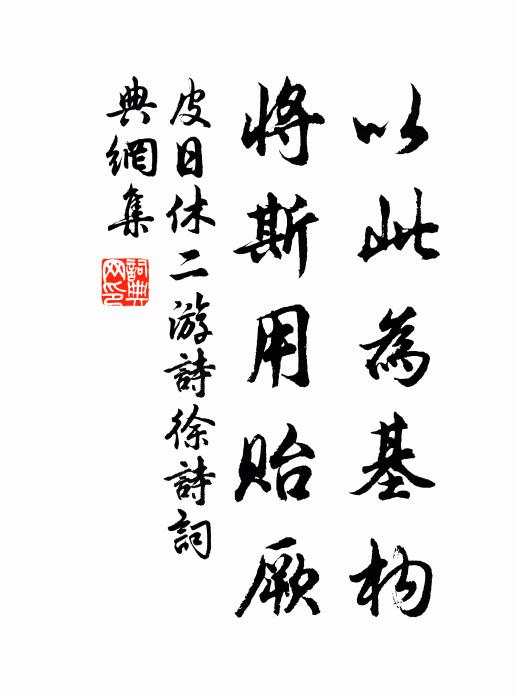 以此為基构
將斯用貽厥
皮日休二游詩徐詩詞
典網集
詞典
网印